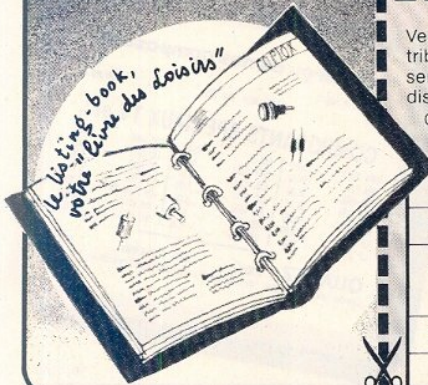 le listing-book,
votre "livre des Loisirs"
COPIOX
Ve
trib
se
dis